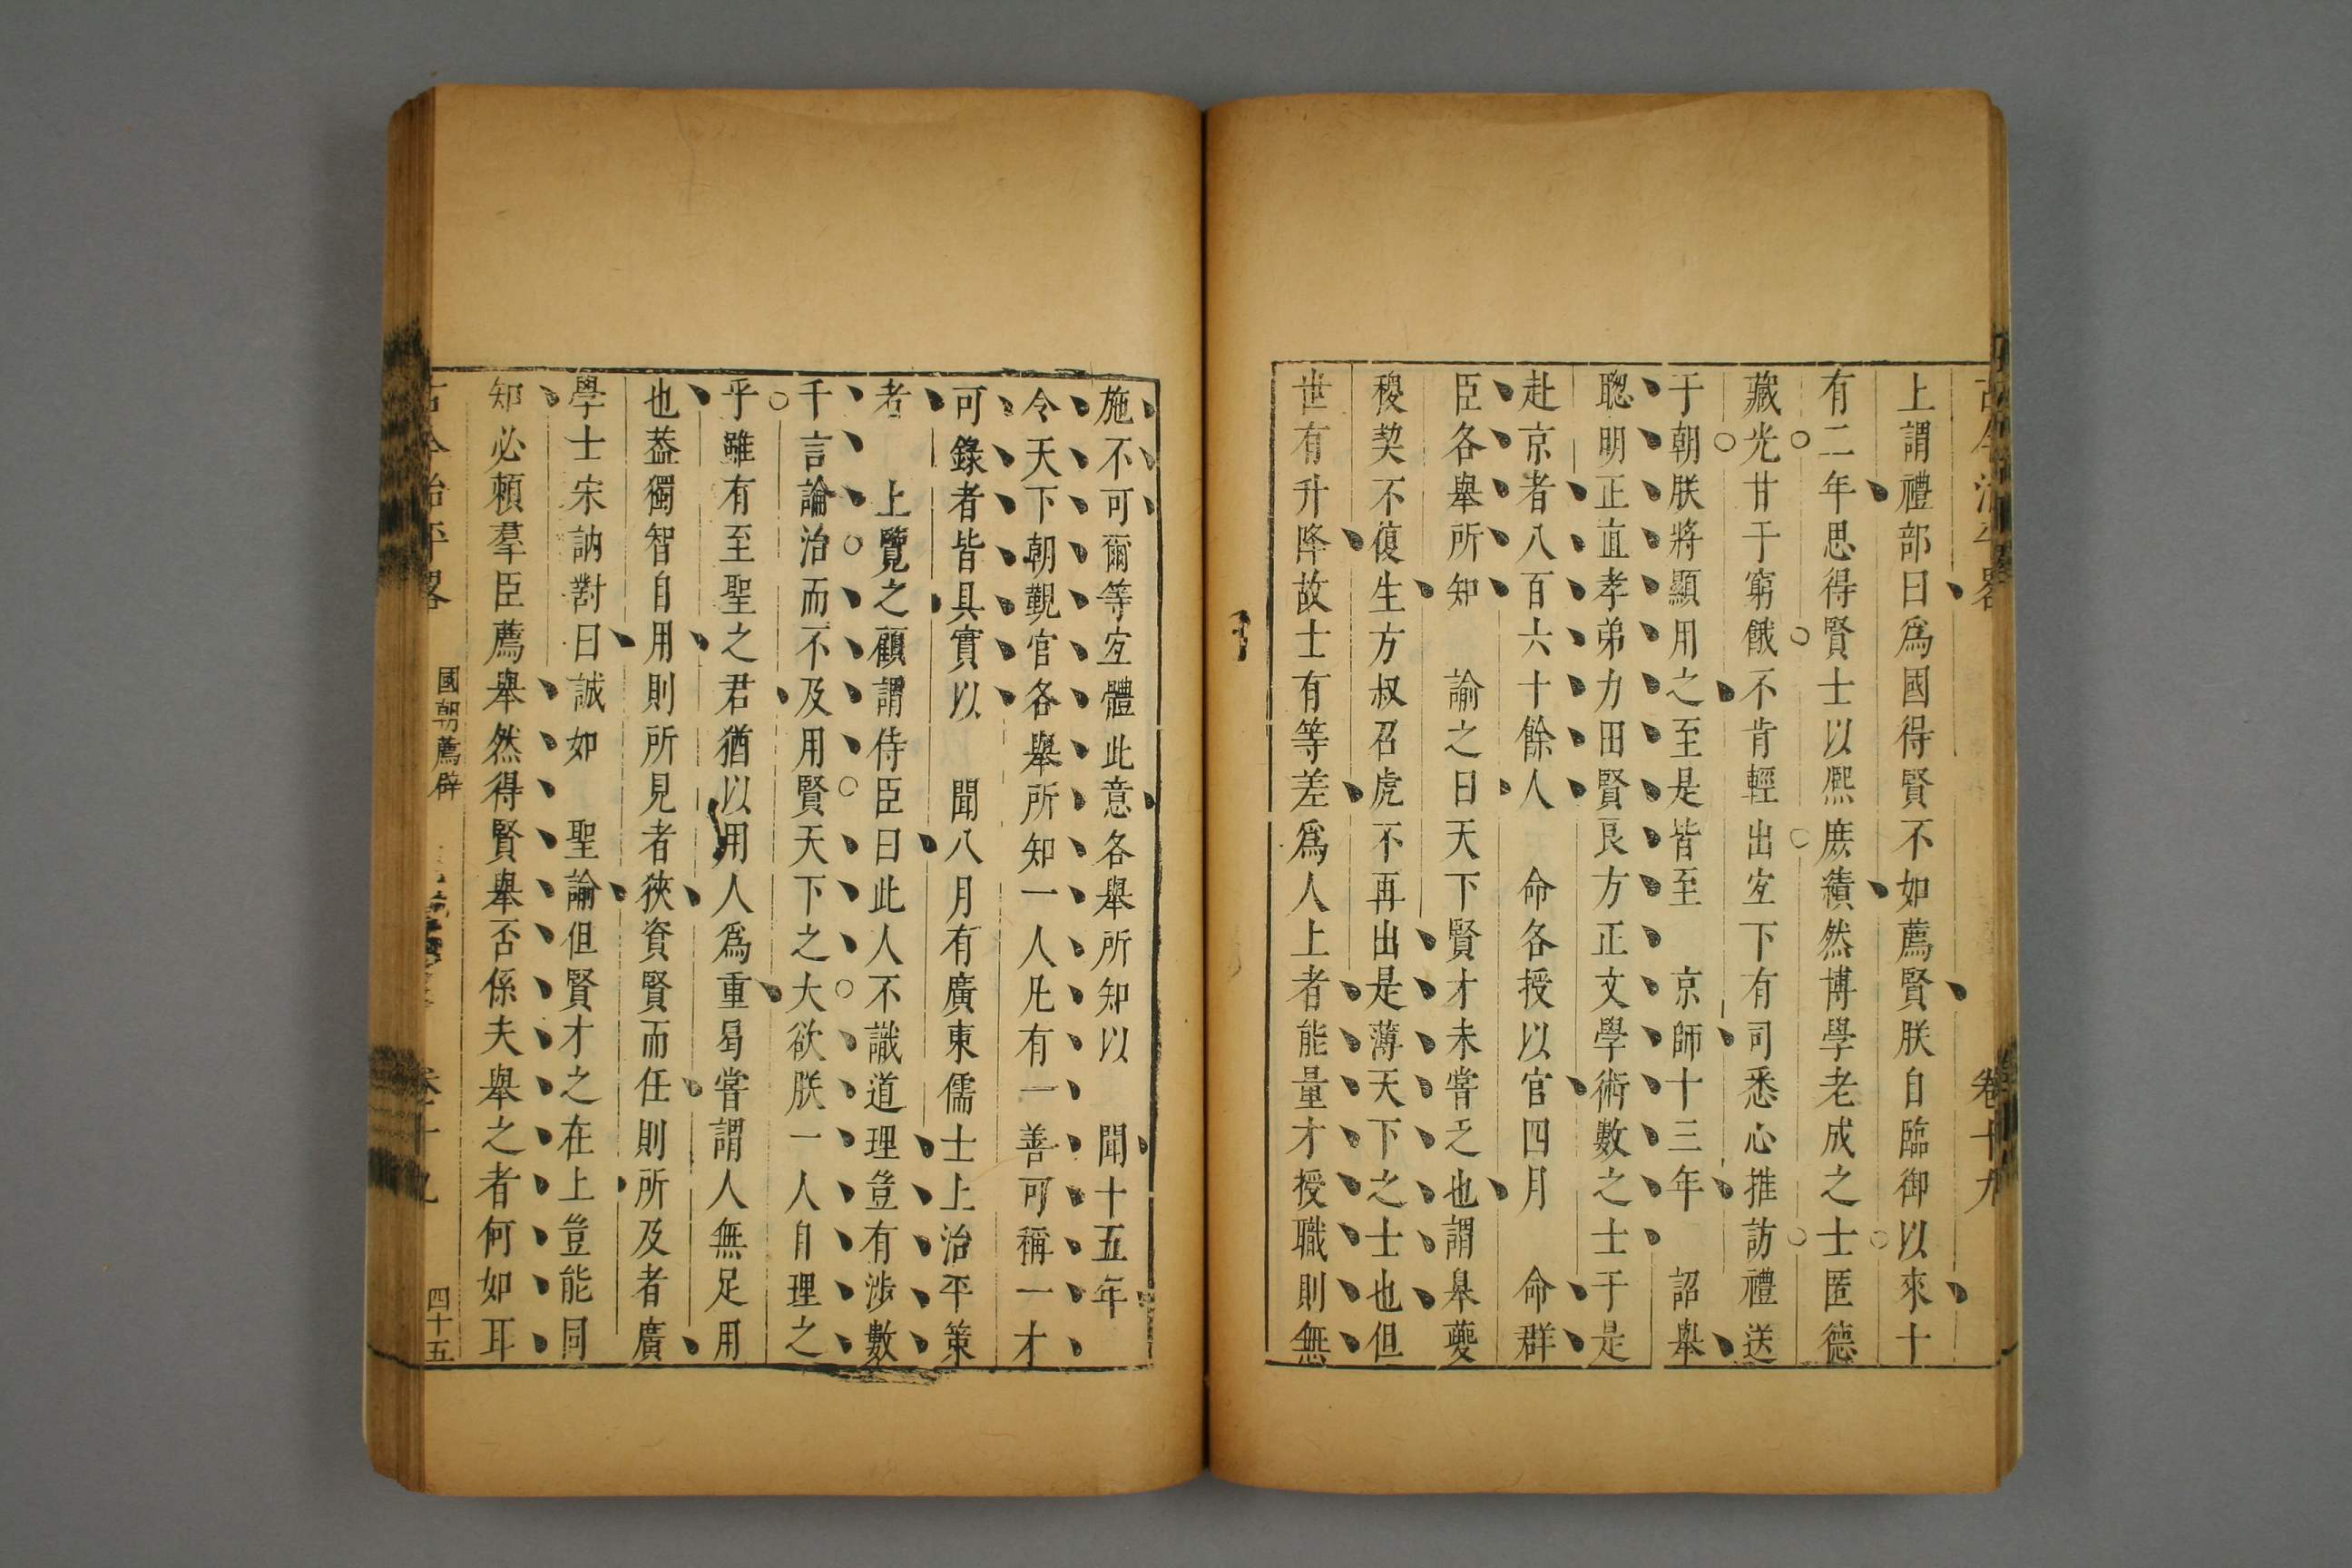 古今治平畧 卷十九
上謂禮部曰爲國得賢不如薦賢朕自臨御以來十
有二年思得賢士以熈庶績然博學老成之士匿德
藏光甘于窮餓不肯輕出宐下有司悉心推訪禮送
于朝朕將顯用之至是皆至 京師十三年 詔舉
聰明正直孝弟力田賢良方正文學術數之士于是
赴京者八百六十餘人 命各授以官四月 命群
臣各舉所知 諭之曰天下賢才未嘗乏也謂臯夔
稷契不復生方叔召虎不再出是薄天下之士也但
世有升降故士有等差爲人上者能量才授職則無
施不可爾等宐體此意各舉所知以 聞十五年
令天下朝覲官各舉所知一人凡有一善可稱一才
可錄者皆具實以 聞八月有廣東儒士上治平策
者 上覽之顧謂侍臣曰此人不識道理豈有涉數
千言論治而不及用賢天下之大欲朕一人自理之
乎雖有至聖之君猶以用人爲重曷嘗謂人無足用
也葢獨智自用則所見者狹資賢而任則所及者廣
學士宋訥對曰誠如 聖諭但賢才之在上豈能同
知必賴羣臣薦舉然得賢舉否係夫舉之者何如耳
古今治平畧 國朝薦辟 卷十九 四十五